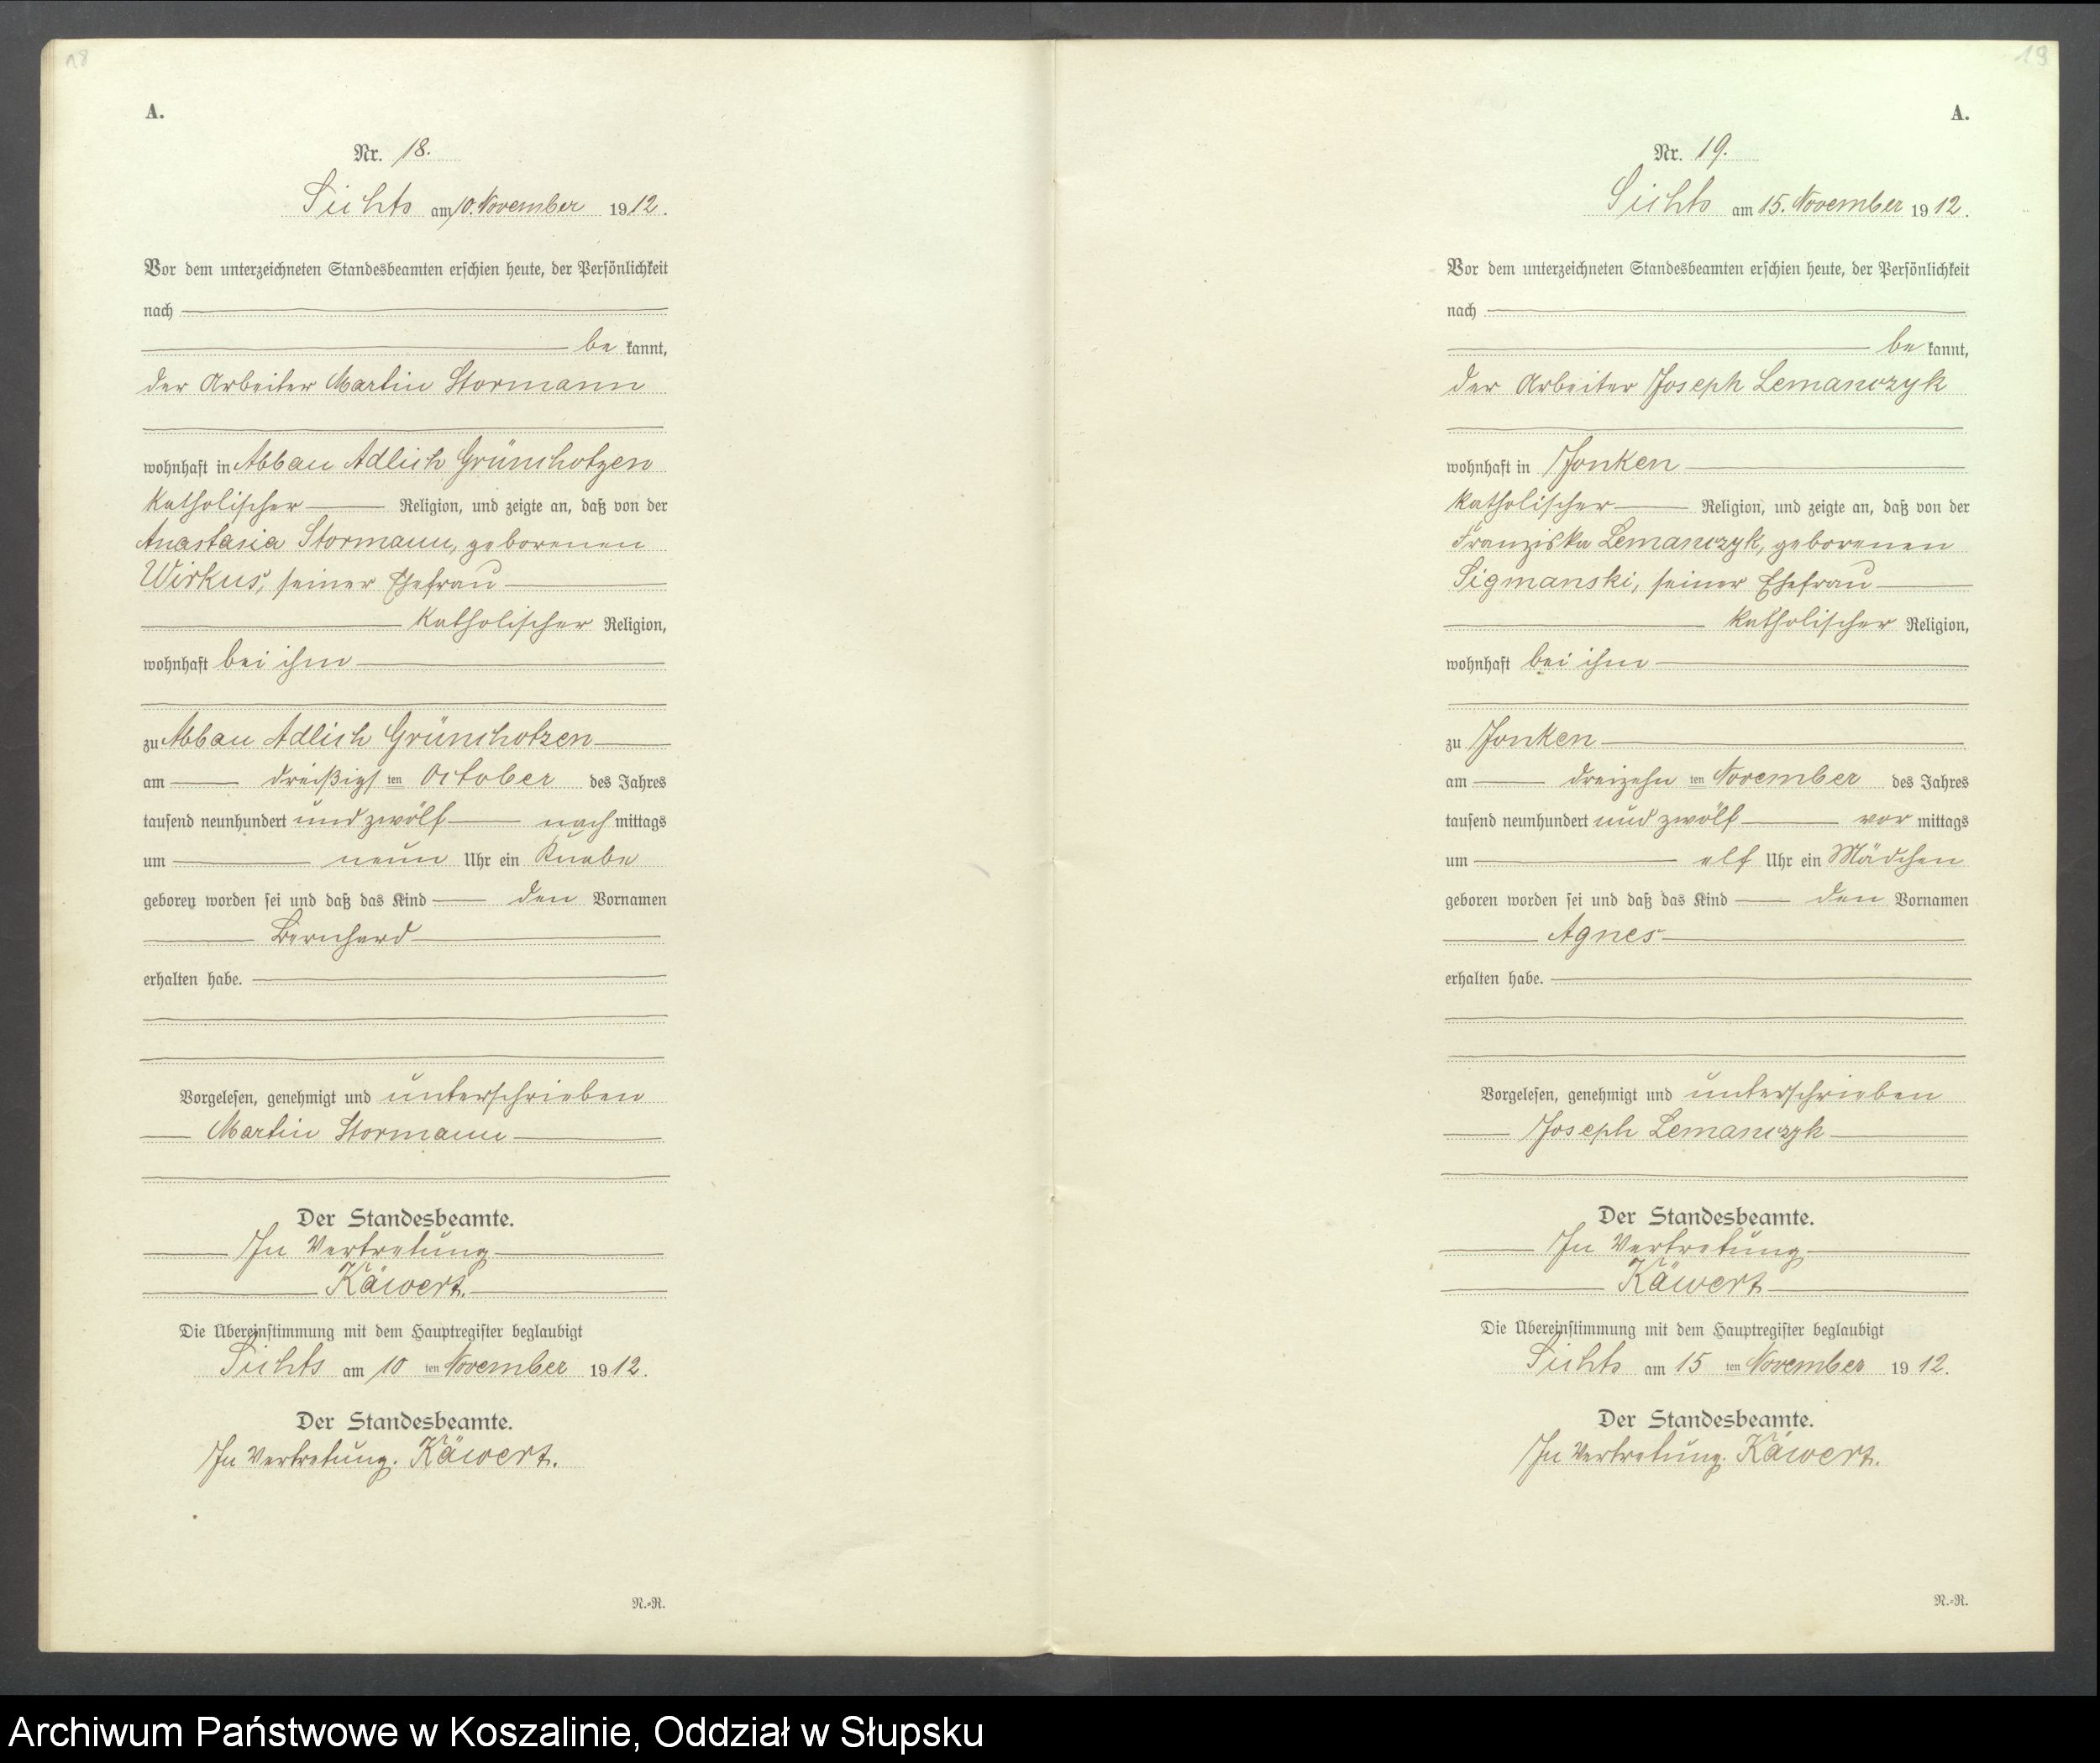 18
A.
Nr. 18.
Sichts am 10. November 1912.
Vor dem unterzeichneten Standesbeamten erschien heute, der Persönlichkeit
nach
be kannt,
der Arbeiter Martin Stormann
wohnhaft in Abbau Adlich Grünchotzen
katholischer Religion, und zeigte an, daß von der
Anastasia Stormann, geborenen
Wirkus, seiner Ehefrau
katholischer Religion,
wohnhaft bei ihm
zu Abbau Adlich Grünchotzen
am dreißigst ten October des Jahres
tausend neunhundert und zwölf nach mittags
um neun Uhr ein Knabe
geboren worden sei und daß das Kind den Vornamen
Bernhard
erhalten habe.
Vorgelesen, genehmigt und unterschrieben
Martin Stormann
Der Standesbeamte.
In Vertretung
Käwert.
Die Übereinstimmung mit dem Hauptregister beglaubigt
Sichts am 10 ten November 1912.
Der Standesbeamte.
In Vertretung. Käwert.
N.-R.
19
A.
Nr. 19.
Sichts am 15. November 1912.
Vor dem unterzeichneten Standesbeamten erschien heute, der Persönlichkeit
nach
be kannt,
der Arbeiter Joseph Lemanczyk
wohnhaft in Jonken
katholischer Religion, und zeigte an, daß von der
Franziska Lemanczyk, geborenen
Sigmanski, seiner Ehefrau
katholischer Religion,
wohnhaft bei ihm
zu Jonken
am dreizehn ten November des Jahres
tausend neunhundert und zwölf vor mittags
um elf Uhr ein Mädchen
geboren worden sei und daß das Kind den Vornamen
Agnes
erhalten habe.
Vorgelesen, genehmigt und unterschrieben
Joseph Lemanczyk
Der Standesbeamte.
In Vertretung
Käwert
Die Übereinstimmung mit dem Hauptregister beglaubigt
Sichts am 15 ten November 1912.
Der Standesbeamte.
In Vertretung. Käwert.
N.-R.
Archiwum Państwowe w Koszalinie, Oddział w Słupsku